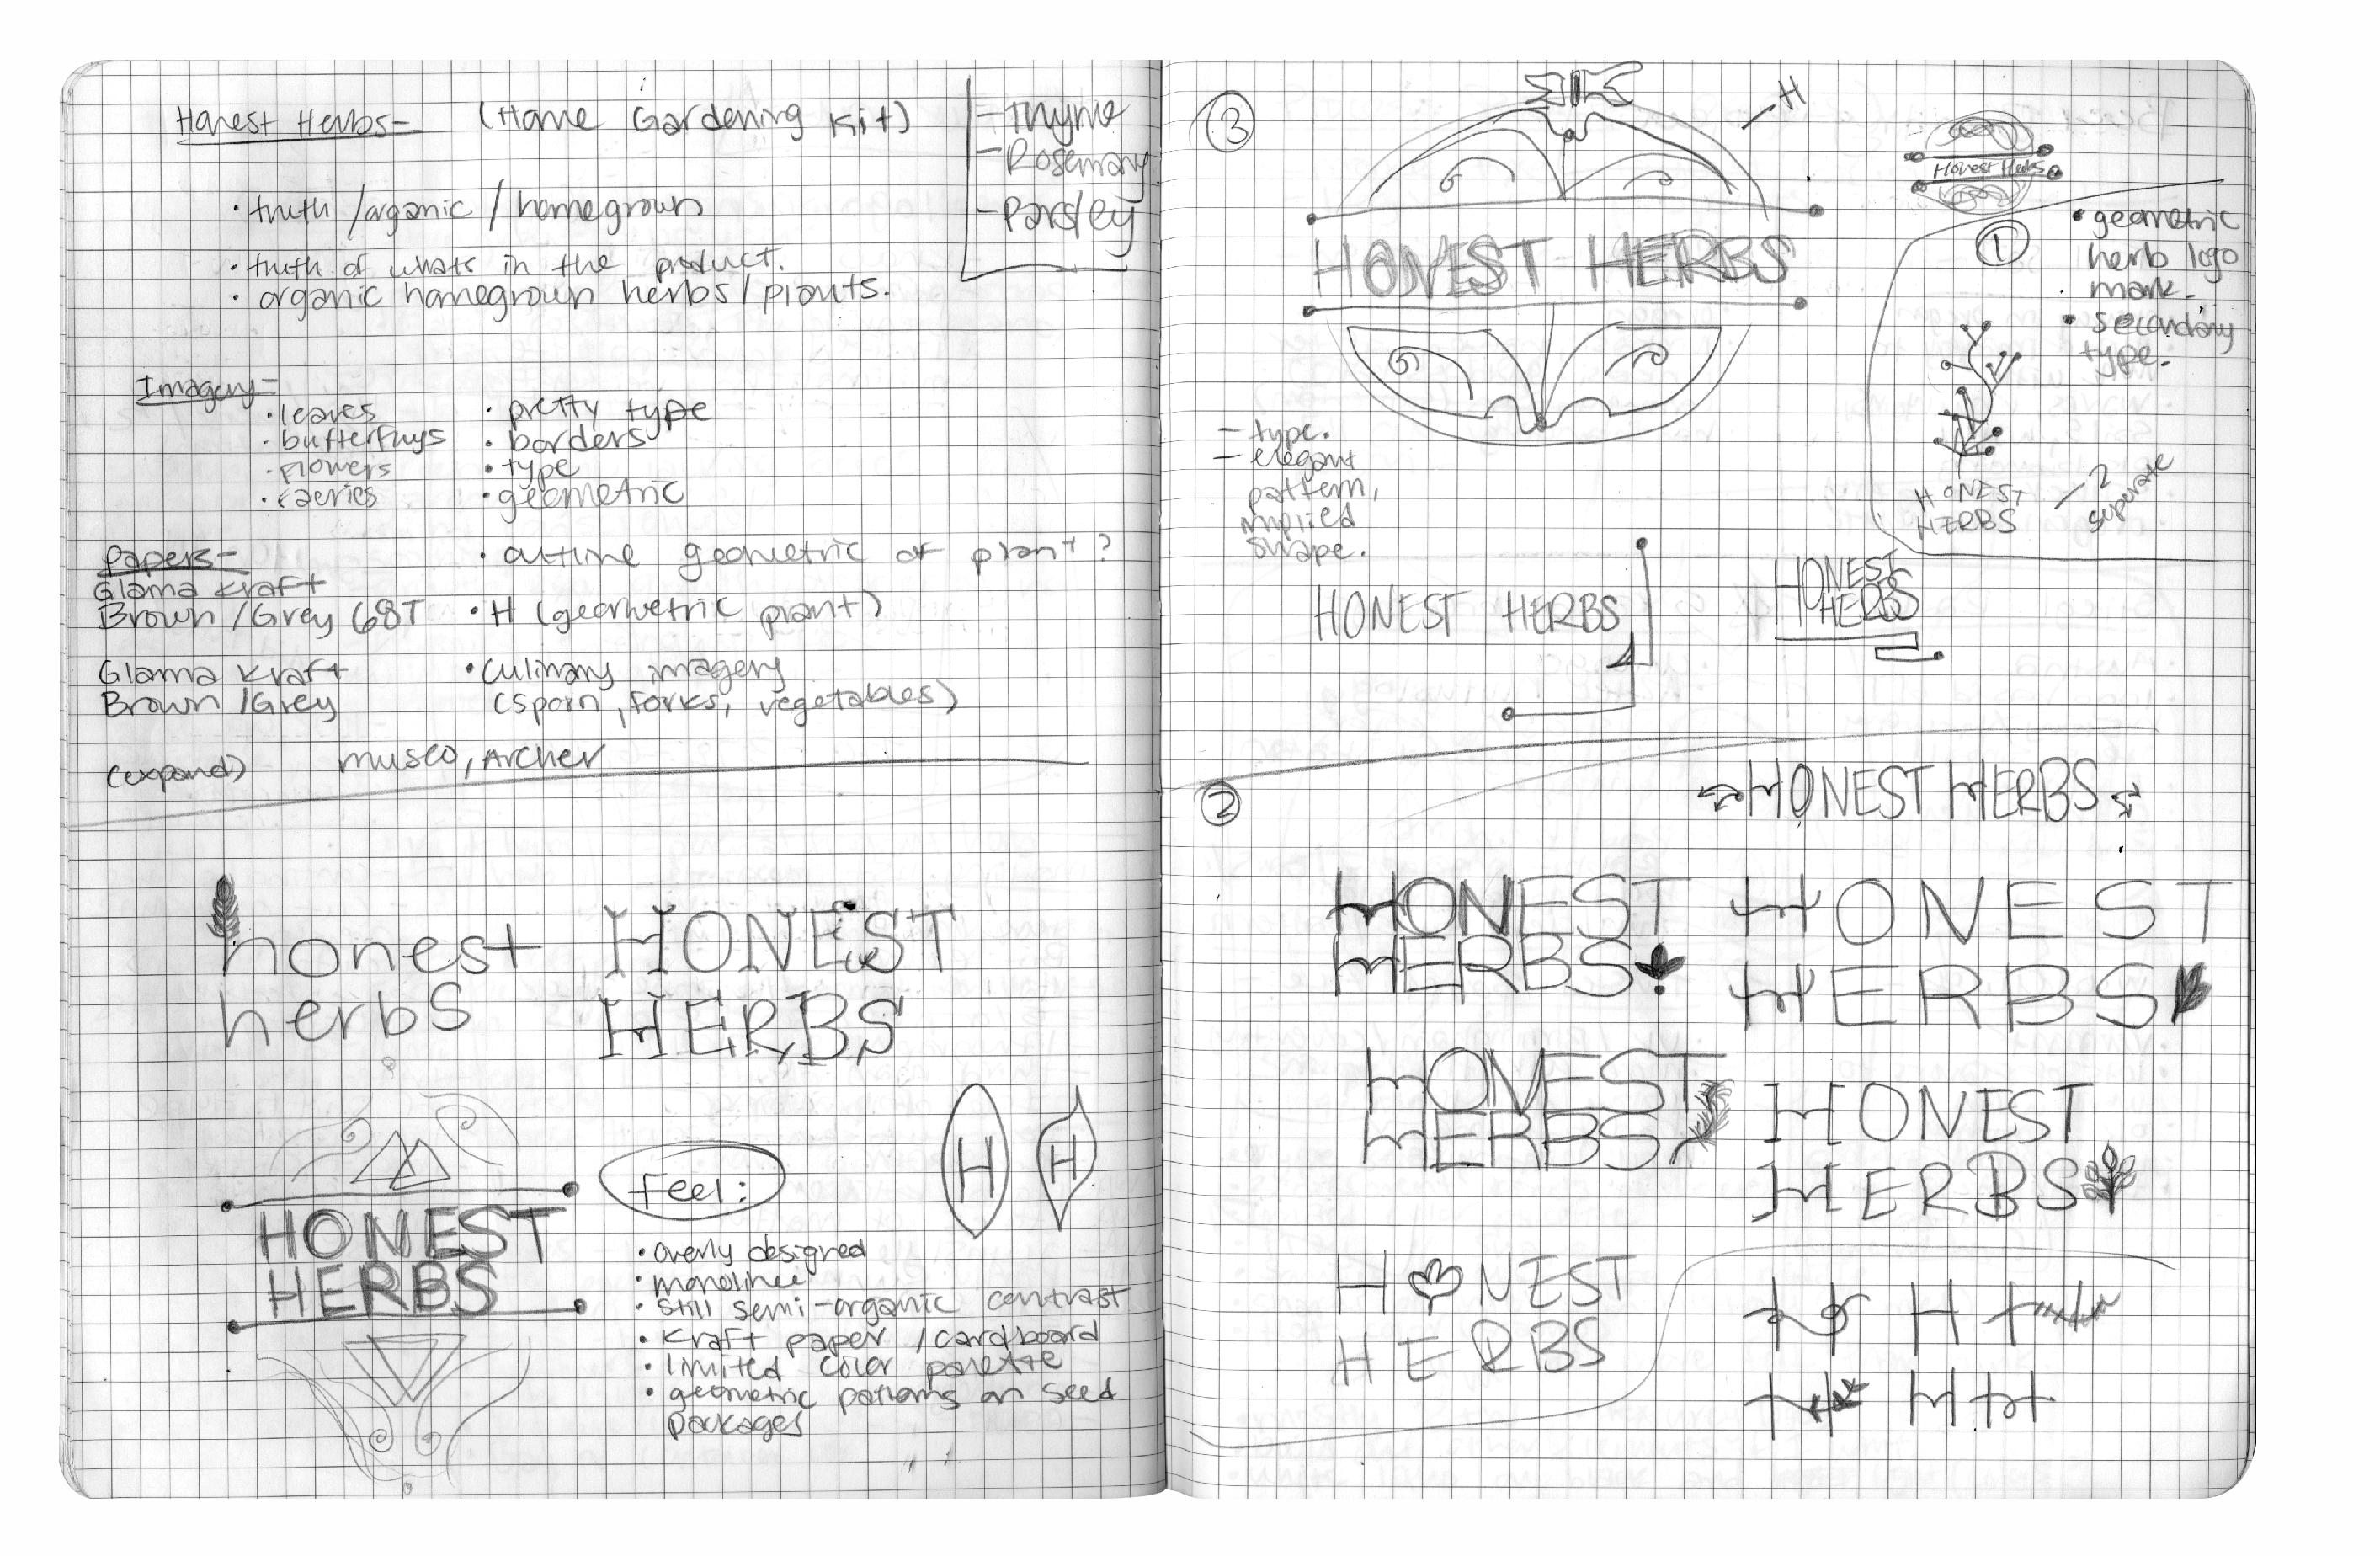 Honest Herbs- (Home Gardening Kit)
- Thyme
- Rosemary
- Parsley
• truth /organic / homegrown
• truth of whats in the product.
• organic homegrown herbs/plants.
Imagery-
• leaves
• butterflys
• flowers
• faeries
• pretty type
• borders
• type
• geometric
• outline geometric of plant?
• H (geometric plant)
• culinary imagery
(spoin, forks, vegetables)
Papers-
Glama Kraft
Brown /Grey 68T
Glama Kraft
Brown /Grey
(expand) museo, Archer
honest
herbs
HONEST
HERBS
HONEST
HERBS
Feel:
• overly designed
• monolinee
• still semi-organic contrast
• Kraft paper /cardboard
• limited color palette
• geometric patterns on seed
packages
H
H
3
HONEST HERBS
- H
Honest Herbs
- type.
- elegant
pattern,
implied
shape.
1
• geometric
herb logo
mark.
• secondary
type.
HONEST
HERBS
- 2
superate
HONEST HERBS
HONEST
HERBS
2
HONEST HERBS
HONEST
HERBS
HONEST
HERBS
HONEST
HERBS
HONEST
HERBS
HONEST
HERBS
H H H H
H H H